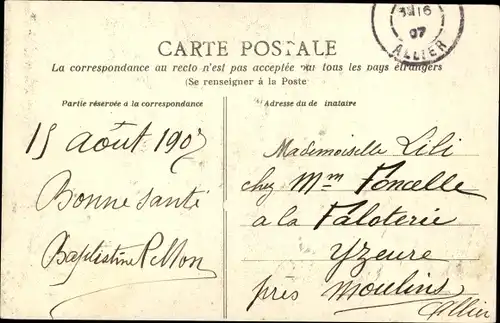 16
07
ALLIER
CARTE POSTALE
La correspondance au recto n'est pas acceptée par tous les pays étrangers
(Se renseigner à la Poste
Partie réservée à la correspondance
Adresse du de inataire
15 août 1907
Bonne santé
Baptistine
Mademoiselle Lili
chez Mme Foncelle
a la Faloterie
Yzeure
près Moulins
Allier